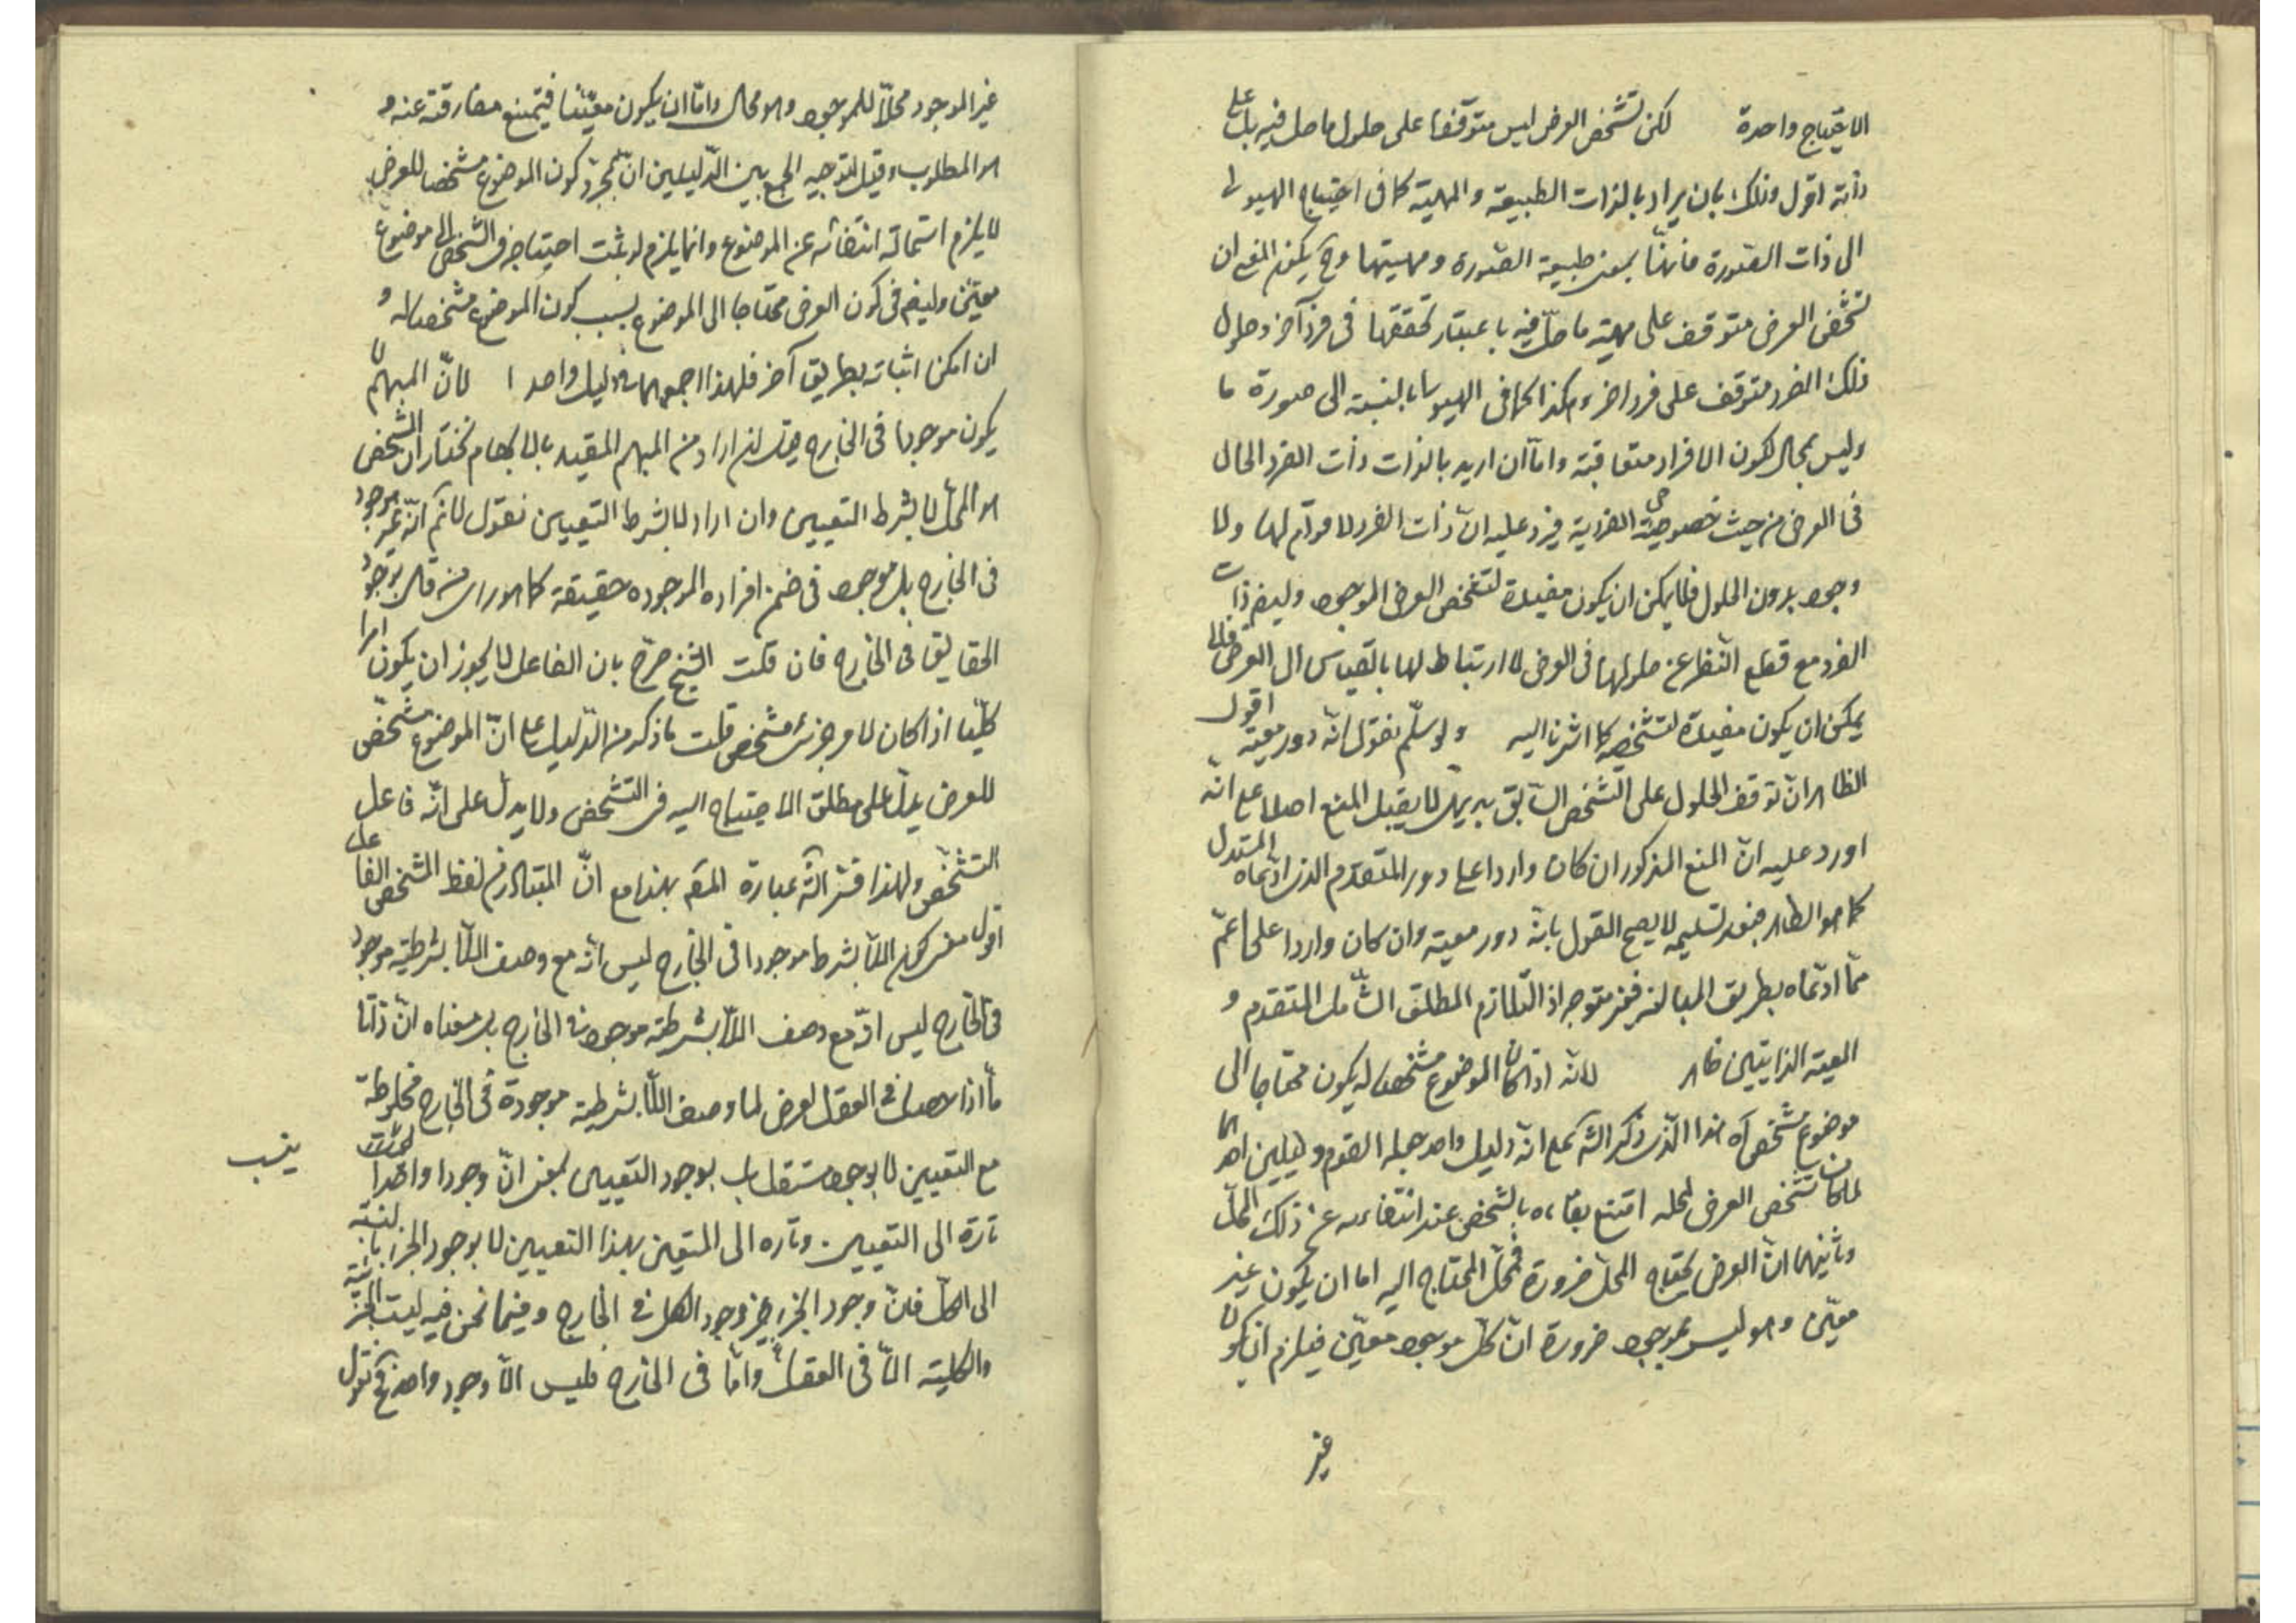 الاحتياج واحدة لكن تشخص العرض ليس متوقفا على حلول ما حل فيه بل على
ذاته اقول وذلك بان يراد بالذات الطبيعة والمهية كما في احتياج الهيولى
الى ذات الصورة فانها بمعنى طبيعة الصورة ومهيتها وح يكون المعنى ان
تشخص العرض متوقف على مهية ما حل فيه باعتبار تحققها في فرد آخر وحلول
ذلك الفرد متوقف على فرد اخر وهكذا كما في الهيولى بالنسبة الى صورة ما
وليس بمحال لكون الافراد متعاقبة واما ان اريد بالذات ذات الفرد الحال
في العرض من حيث خصوصية الفردية فيرد عليه ان ذات الفرد لا قوام لها ولا
وجود بدون الحلول فلا يمكن ان يكون مفيدة لتشخص العرض الموجود وايضا ذات
الفرد مع قطع النظر عن حلولها في العرض لا ارتباط لها بالقياس الى العرض فلا
يمكن ان يكون مفيدة لتشخصه كما اشرنا اليه ولو سلم نقول انه دور معية اقول
الظاهر ان توقف الحلول على التشخص السابق بديهى لا يقبل المنع اصلا على انه
اورد عليه ان المنع المذكور ان كان واردا على دور المتقدم الذى ادعاه المستدل
كما هو الظاهر فبعد تسليمه لا يصح القول بانه دور معية وان كان واردا على اعم
مما ادعاه بطريق المبالغة فغير متوجه اذ التلازم المطلق الشامل المتقدم و
المعية الذاتيين ظاهر لانه اذا كان الموضوع مشخصا له يكون محتاجا الى
موضوع مشخص آه هذا الذى ذكره الشه على انه دليل واحد جعله القوم دليلين احدهما
لما كان تشخص العرض لمحله امتنع بقاءه بالشخص عند انتفاءه عن ذلك المحل
وثانيهما ان العرض يحتاج المحل ضرورة فمحل المحتاج اليه اما ان يكون غير
معين وهو ليس بموجود ضرورة ان كل موجود معين فيلزم ان يكون
غير
غير الموجود محلا للموجود وهو محال واما ان يكون معينا فيمتنع مفارقته عنه و
هو المطلوب وقيل لتوجيه الجمع بين الدليلين ان بمجرد كون الموضوع مشخصا للعرض
لا يلزم استحالة انتقاله عن الموضوع وانما يلزم لو ثبت احتياجه في التشخص الى موضوع
معين وايضا في كون العرض محتاجا الى الموضوع بسبب كون الموضوع مشخصا له و
ان امكن اثباته بطريق آخر فلهذا جمعهما دليلا واحدا لان المبهم لا
يكون موجودا في الخارج فيه ان اراد من المبهم المقيد بالابهام نختار ان المشخص
هو المحل لا بشرط التعيين وان اراد لا بشرط التعيين نقول لانم انه غير موجود
في الخارج بل موجود في ضمن افراده الموجودة حقيقة كما هو راى من قال بوجود
الحقايق في الخارج فان قلت الشيخ صرح بان الفاعل لا يجوز ان يكون امرا
كليا اذا كان لامر جزئى مشخص قلت ما ذكر من الدليل على ان الموضوع مشخص
للعرض يدل على مطلق الاحتياج اليه في التشخص ولا يدل على انه فاعل
التشخص ولهذا فسر الشه عبارة المصه بهذا مع ان المتبادر من لفظ المشخص الفاعل
اقول معنى كون اللا بشرط موجودا في الخارج ليس انه مع وصف اللا بشرطية موجود
في الخارج ليس انه مع وصف اللا بشرطية موجود في الخارج بل معناه ان ذاتا
ما اذا حصل في العقل لعرض لها وصف اللا بشرطية موجودة في الخارج مخلوطة
مع التعيين لا بوجود مستقل بل بوجود التعيين بمعنى ان وجودا واحدا
ينسب
تارة الى التعيين وتاره الى المتعين بهذا التعيين لا بوجود الجزء بالنسبة
الى الكل فان وجود الجزء غير وجود الكل في الخارج وفيما نحن فيه ليست الجزئية
والكلية الا في العقل واما في الخارج فليس الا وجود واحد نقول